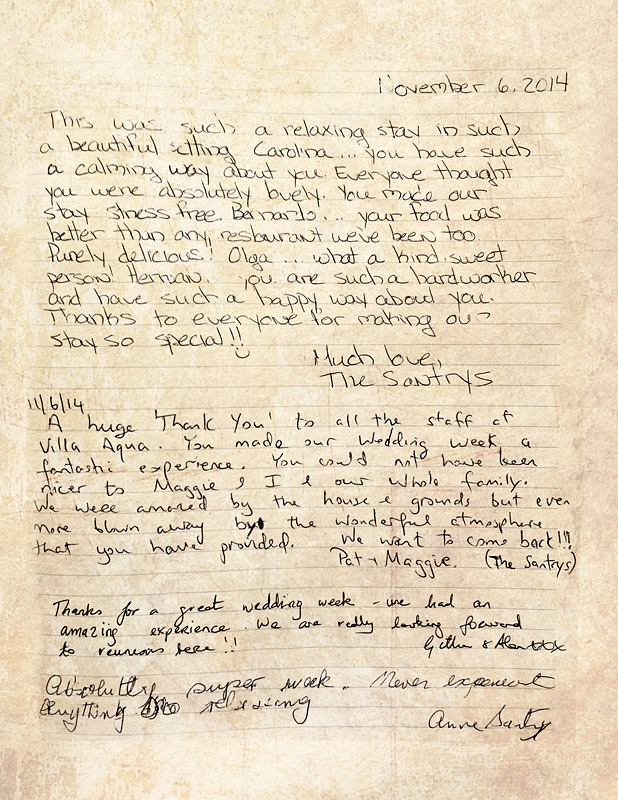 November 6, 2014
This was such a relaxing stay in such
a beautiful setting. Carolina... you have such
a calming way about you. Everyone thought
you were absolutely lovely. You made our
stay stress free. Bernardo... your food was
better than any restaurant we've been too
Purely delicious! Olga... what a kind sweet
person! Hernan.. you are such a hardworker
and have such a happy way about you.
Thanks to everyone for making our
stay so special!!
Much love,
The Santrys
11/6/14
A huge 'Thank You' to all the staff at
Villa Aqua. You made our Wedding week a
fantastic experience. You could not have been
nicer to Maggie & I & our whole family.
We were amazed by the house & grounds but even
more blown away by the wonderful atmosphere
that you have provided. We want to come back!!!
Pat + Maggie. (The Santrys)
Thanks for a great wedding week - we had an
amazing experience. We are really looking forward
to reunions here!!
& Alan xox
Absolutly super week. Never experienced
anything so relaxing
Anne Santry